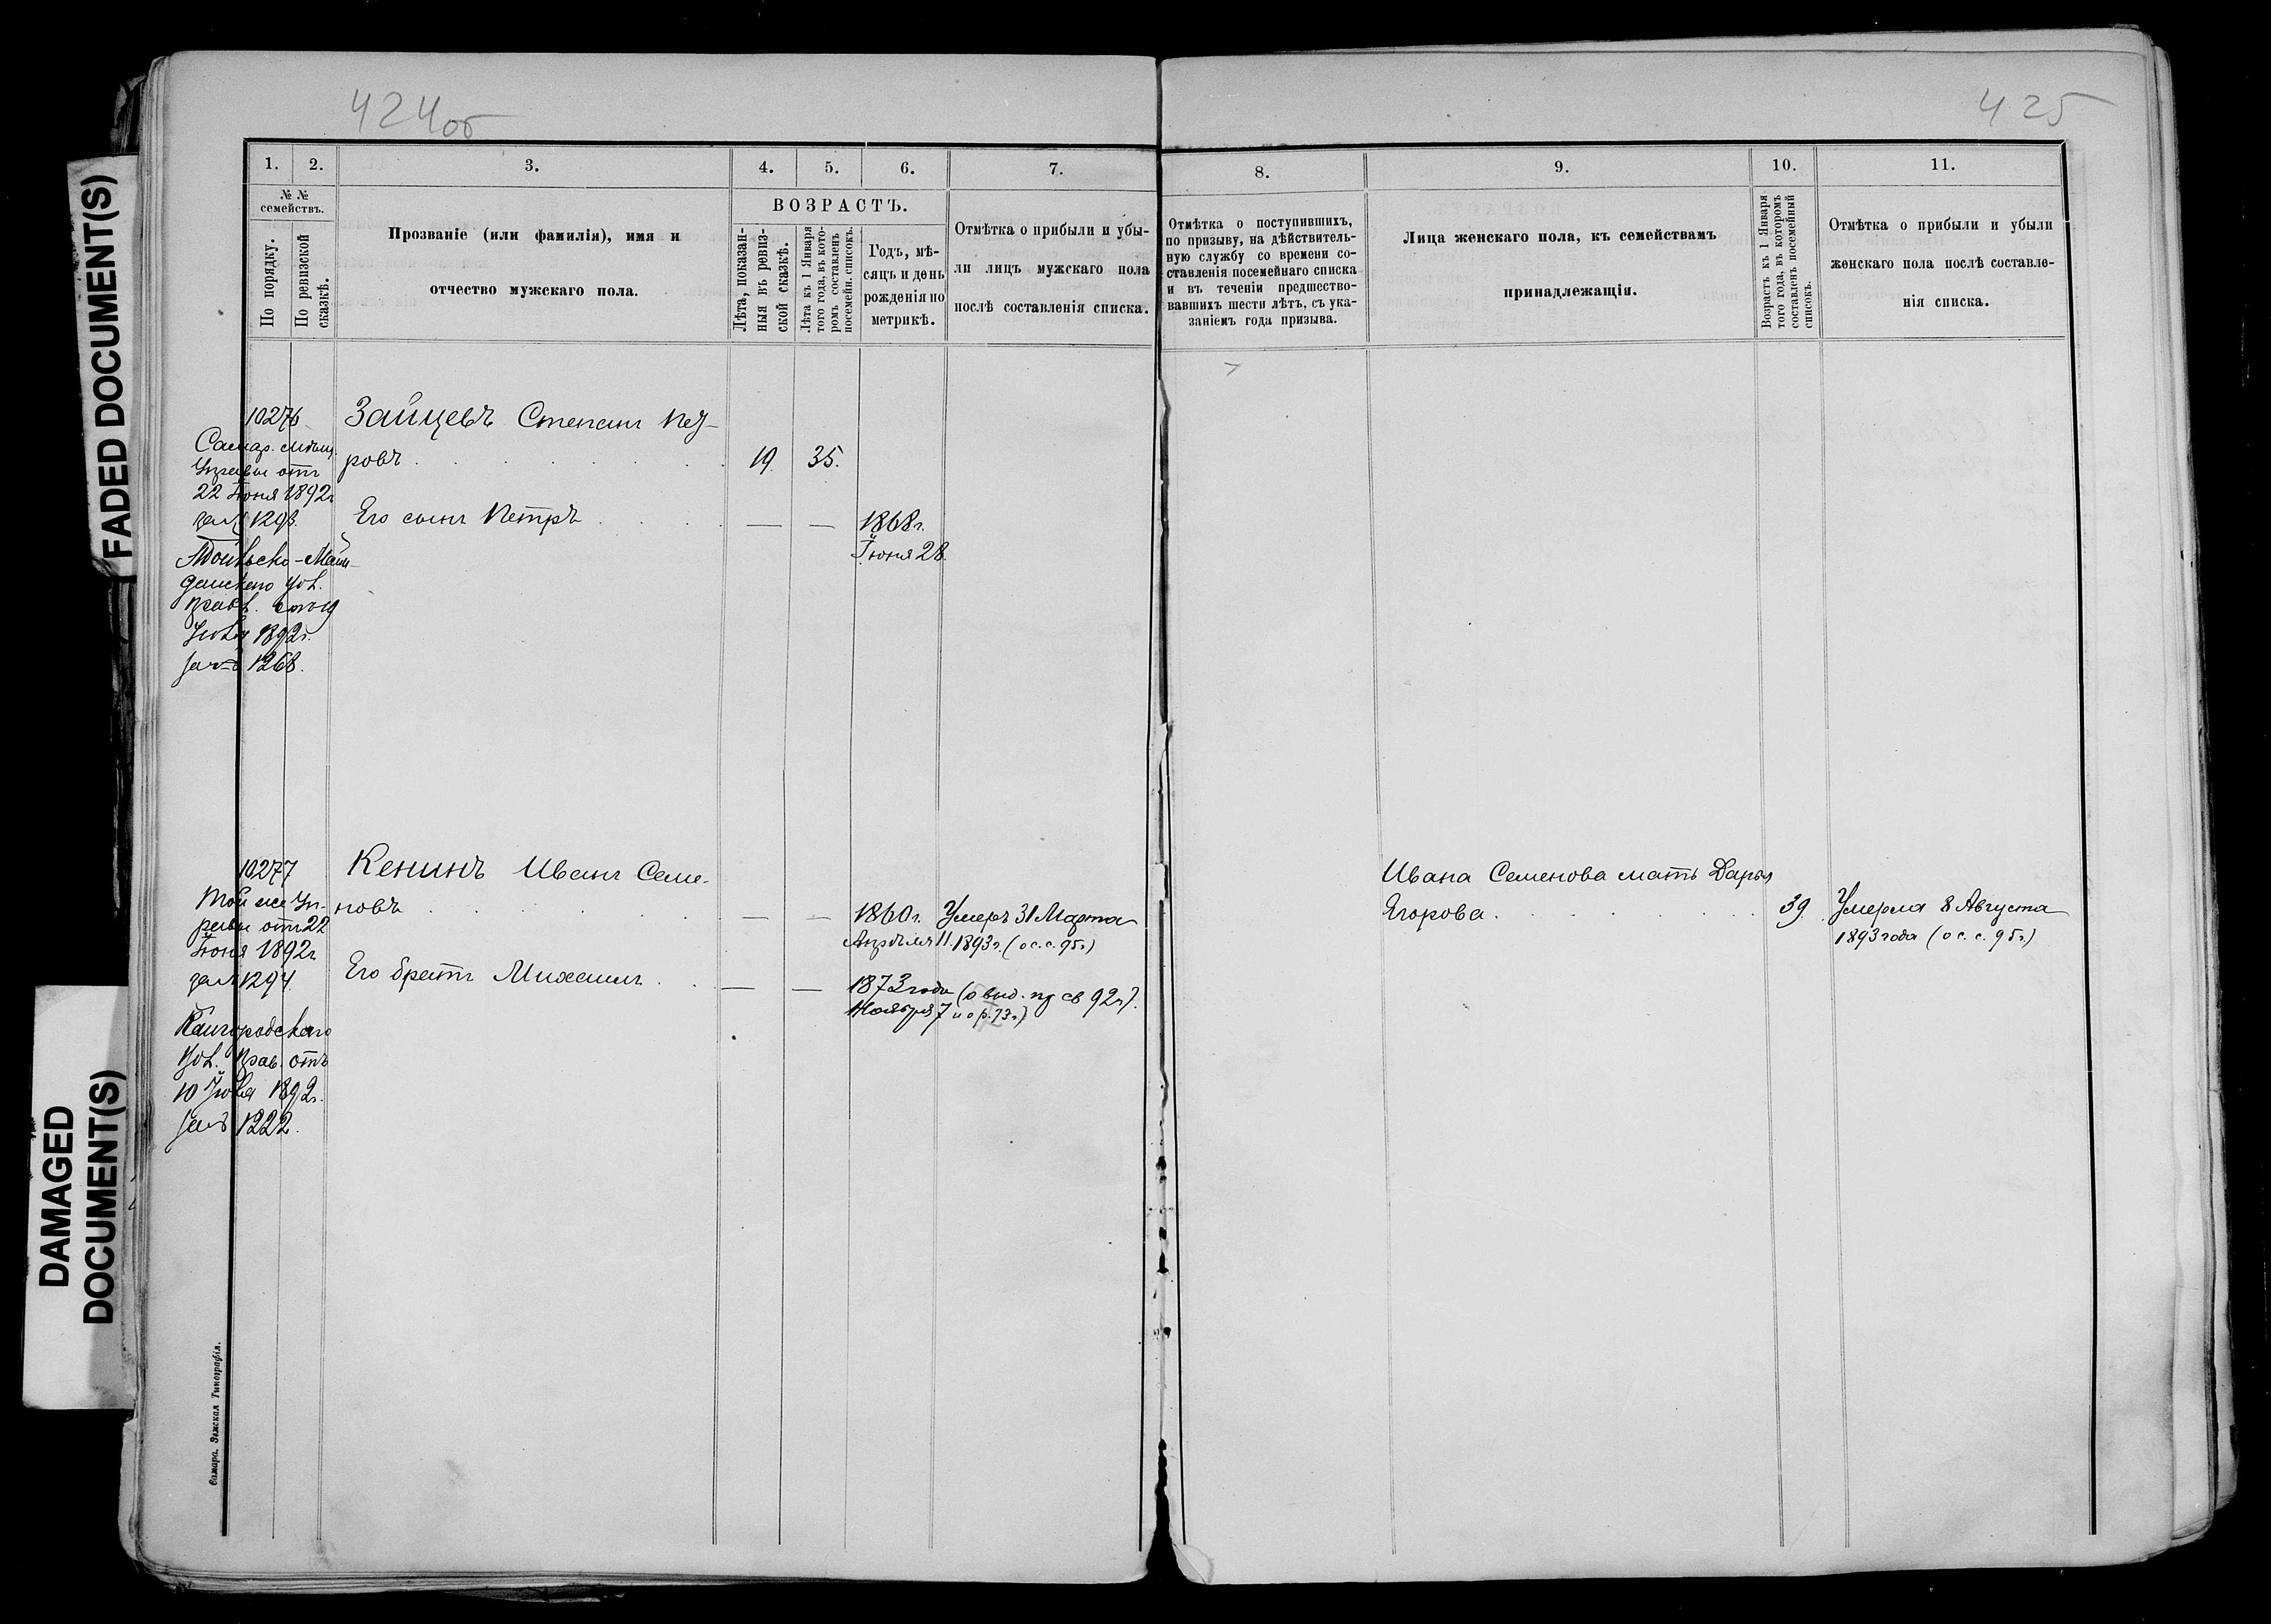 424об
425
FADED DOCUMENT(S)
DAMAGED
DOCUMENT(S)
1. 2. 3. 4. 5. 6. 7. 8. 9. 10. 11.
№ №
семействъ.
По порядку.
По ревизской
сказкѣ.
Прозваніе (или фамилія), имя и
отчество мужскаго пола.
ВОЗРАСТЪ.
Лѣта, показан-
ныя въ ревиз-
ской сказкѣ.
Лѣта къ 1 Января
того года, въ кото-
ромъ составленъ
посемейн. списокъ.
Годъ, мѣ-
сяцъ и день
рожденія по
метрикѣ.
Отмѣтка о прибыли и убы-
ли лицъ мужскаго пола
послѣ составленія списка.
Отмѣтка о поступившихъ,
по призыву, на дѣйствитель-
ную службу со времени со-
ставленія посемейнаго списка
и въ теченіи предшество-
вавшихъ шести лѣтъ, съ ука-
заніемъ года призыва.
Лица женскаго пола, къ семействамъ
принадлежащія.
Возрастъ къ 1 Января
того года, въ которомъ
составленъ посемейный
списокъ.
Отмѣтка о прибыли и убыли
женскаго пола послѣ составле-
нія списка.
10276
Самар. мѣщ.
Управы отъ
22 Іюня 1892г
за № 1293.
Майн-
данскаго вол.
правл. отъ 19
Іюля 1892г.
за № 1268.
Зайцевъ Степанъ Пет-
ровъ 19. 35.
Его сынъ Петръ — — 1868г.
Іюня 28.
10277
Той же Уп-
равы отъ 22
Іюня 1892г
за № 1294.
Кайгородскаго
Вол. Прав. отъ
10 Іюля 1892г.
за № 1222.
Кенинъ Иванъ Семе-
новъ — — 1860г. Умеръ 31 Марта
Апрѣля 11. 1893г. (о с. с. 95г)
Его братъ Михаилъ — — 1873 года (о выд. пр св 92г).
Ноября 7 и о р. 73г)
Ивана Семенова мать Дарья
Егорова 39. Умерла 8 Августа
1893 года (о с. с. 95г.)
Самара. Земская Типографія.